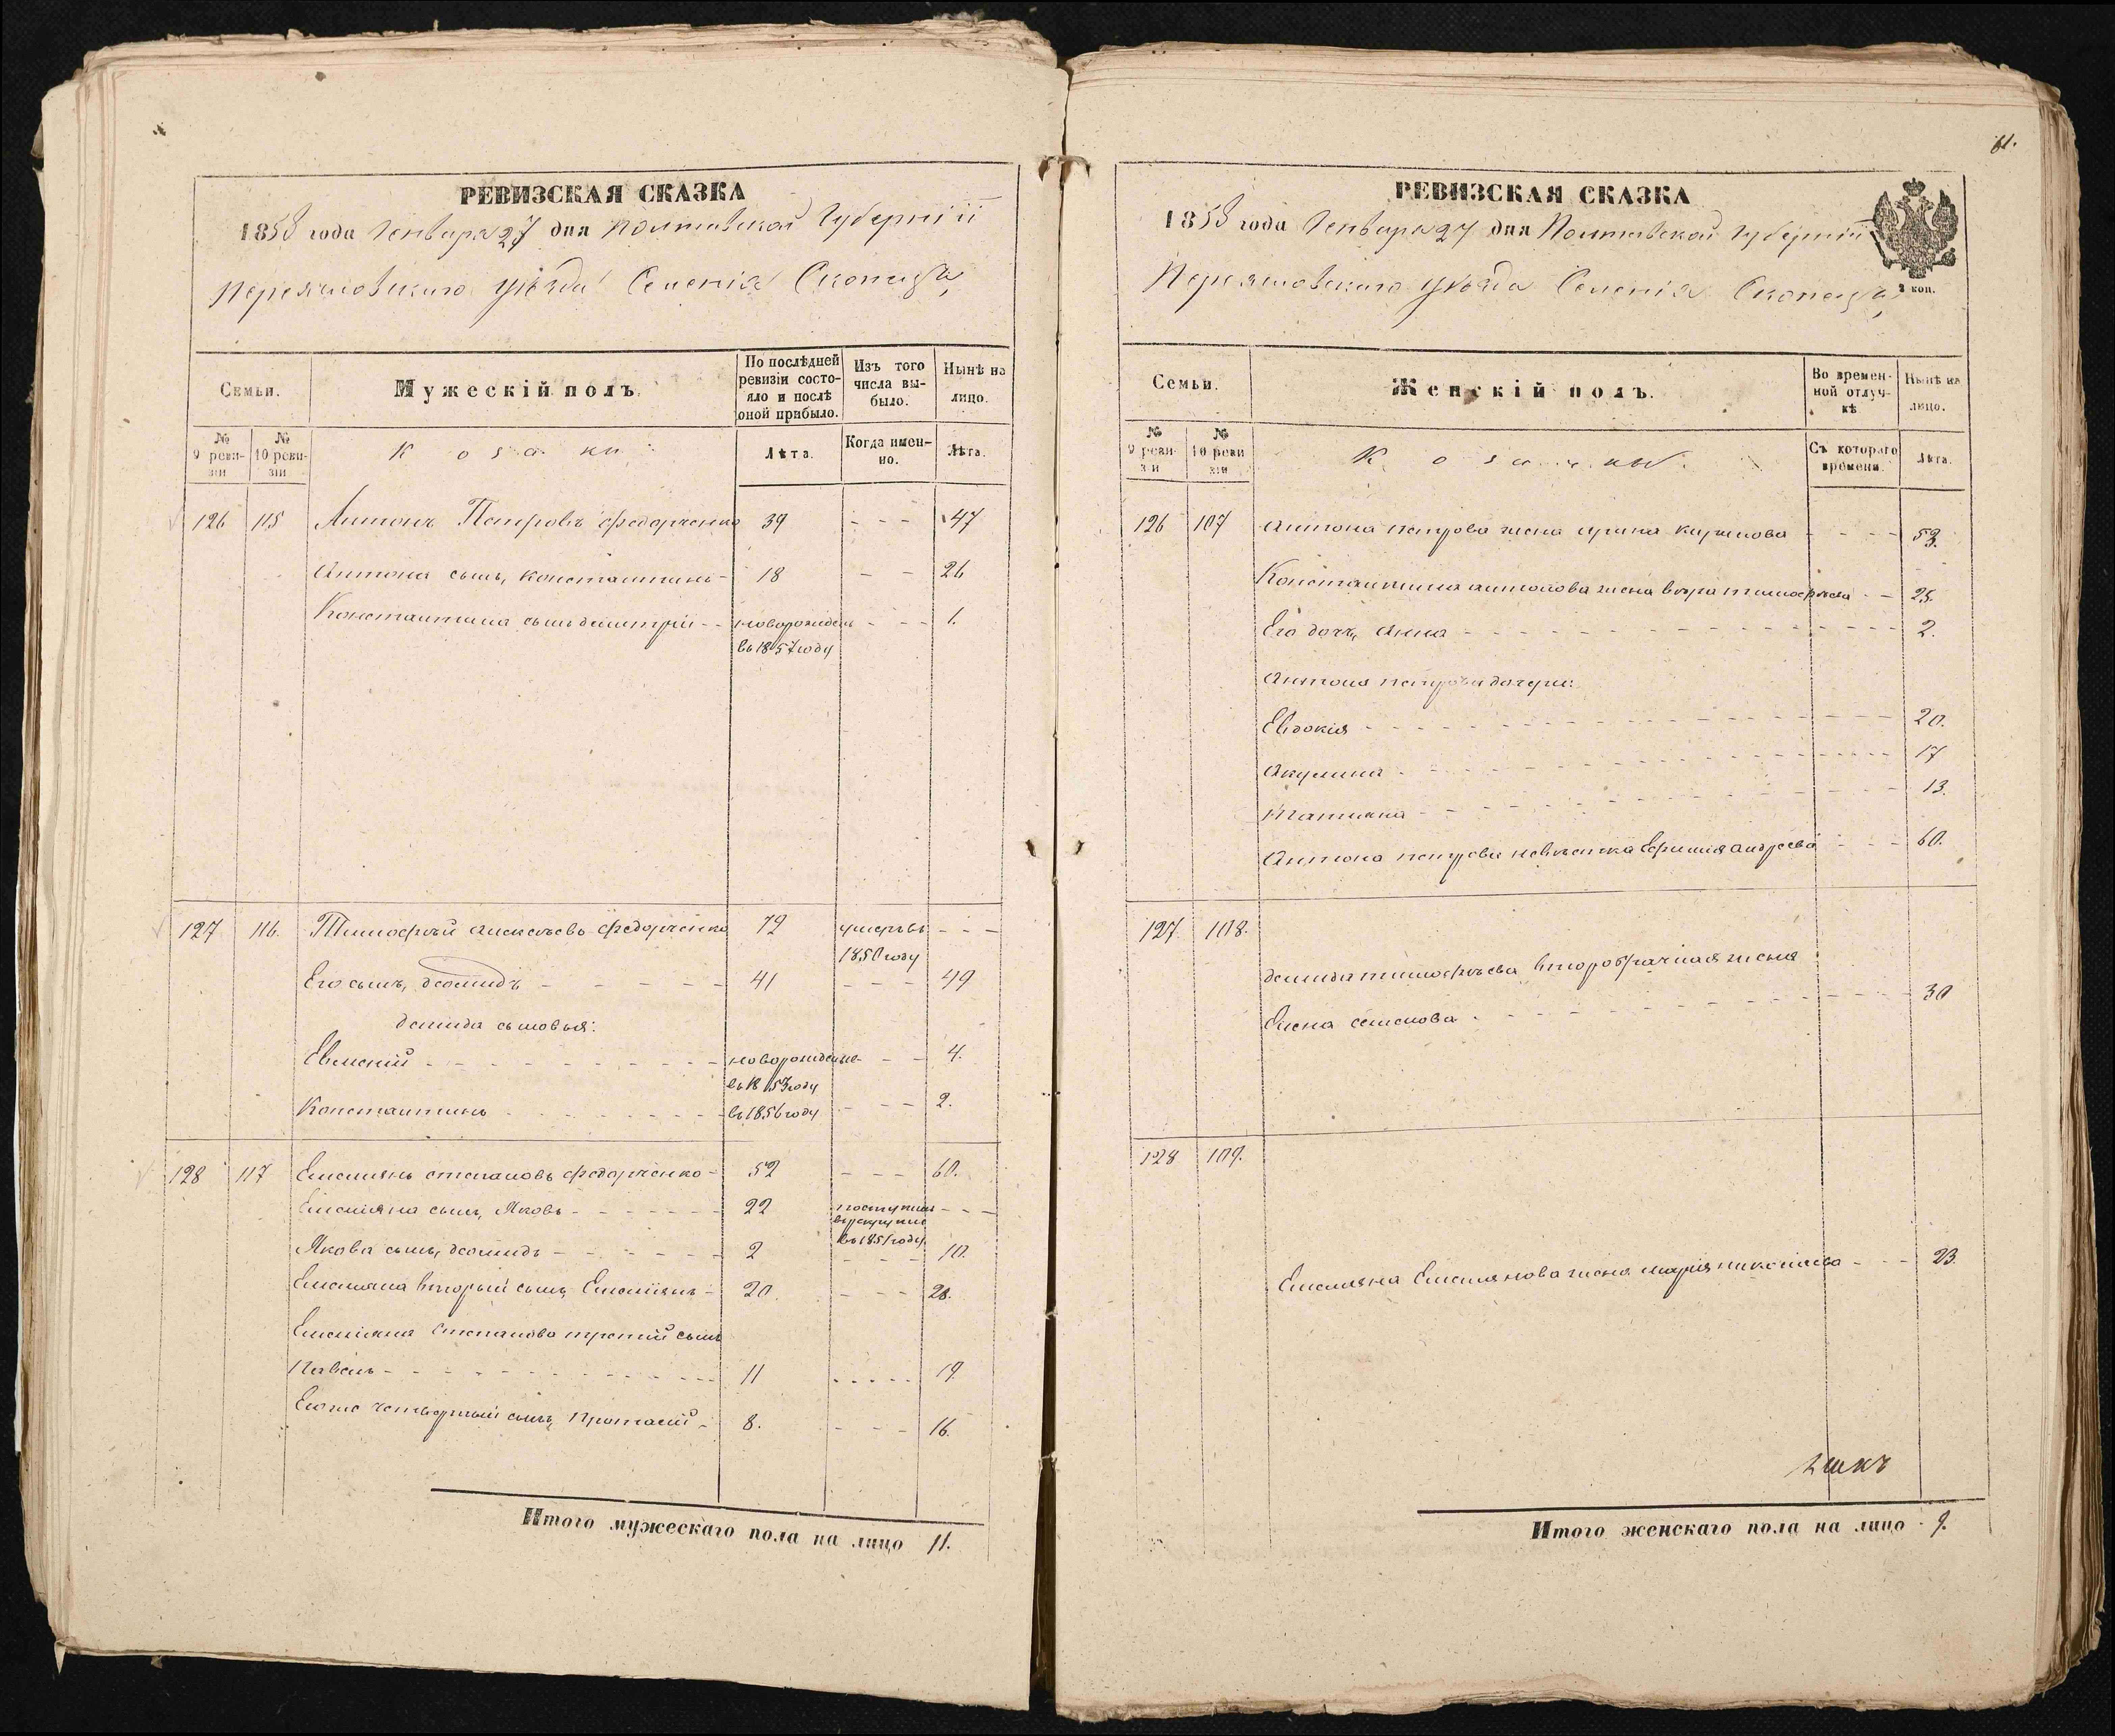 РЕВИЗСКАЯ СКАЗКА
1858 года Генваря 27 дня Полтавской Губерніи
Переяславскаго уѣзда Селенія
Семьи.
Мужескій полъ.
По послѣдней ревизіи состояло и послѣ оной прибыло.
Изъ того числа выбыло.
Нынѣ на лицо.
№ 9 ревизіи
№ 10 ревизіи
Козаки:
Лѣта.
Когда именно.
Лѣта.
126 115 Антонъ Петровъ Федорченко 39 - - - 47
Антона сынъ, Константинъ - 18 - - 26
Константина сынъ димитрій - - новорожденъ - - - 1.
въ 1857 году
127 116. Тимофѣй Алексѣевъ Федорченко 79 умеръ въ - - -
1850 году
Его сынъ, демидъ - - - - - 41 - - - 49
демида сыновья:
Евгеній - - - новорожденные - - 4.
въ 1853 году
Константинъ - - - въ 1856 году - - - 2.
128 117 Емельянъ степановъ федорченко - 52 - - - 60.
Емельяна сынъ, Яковъ - - - 22 поступилъ - - -
въ рекруты
въ 1851 году
Якова сынъ, демидъ - - - 2 - - - 10.
Емельяна вторый сынъ, Емельянъ - 20. - - - 28.
Емельяна Степанова третій сынъ
Павелъ - - - 11 - - - 19.
Его же четвертый сынъ, Протасій - 8. - - - 16.
Итого мужескаго пола на лицо 11.
61.
РЕВИЗСКАЯ СКАЗКА
1858 года Генваря 27 дня Полтавской Губерніи
Переяславскаго уѣзда Селенія
3 коп.
Семьи.
Женскій полъ.
Во временной отлучкѣ.
Нынѣ на лицо.
№ 9 ревизіи
№ 10 ревизіи
Козачки.
Съ котораго времени.
Лѣта.
126 107 Антона петрова жена ирина кирилова - - - - 53.
Константина антонова жена вѣра тимофѣева - - 25.
Его дочь, Анна - - - 2.
Антона петрова дочери:
Евдокія - - - 20.
Акулина - - - 17
Татіяна - - - 13.
Антона петрова невѣстка Ефимія андреева - - - 60.
127. 108.
демида тимофѣева второбрачная жена
Елена семенова - - - 30
128 109.
Емельяна Емельянова жена марія николаева - - - 23.
Итого женскаго пола на лицо 9.